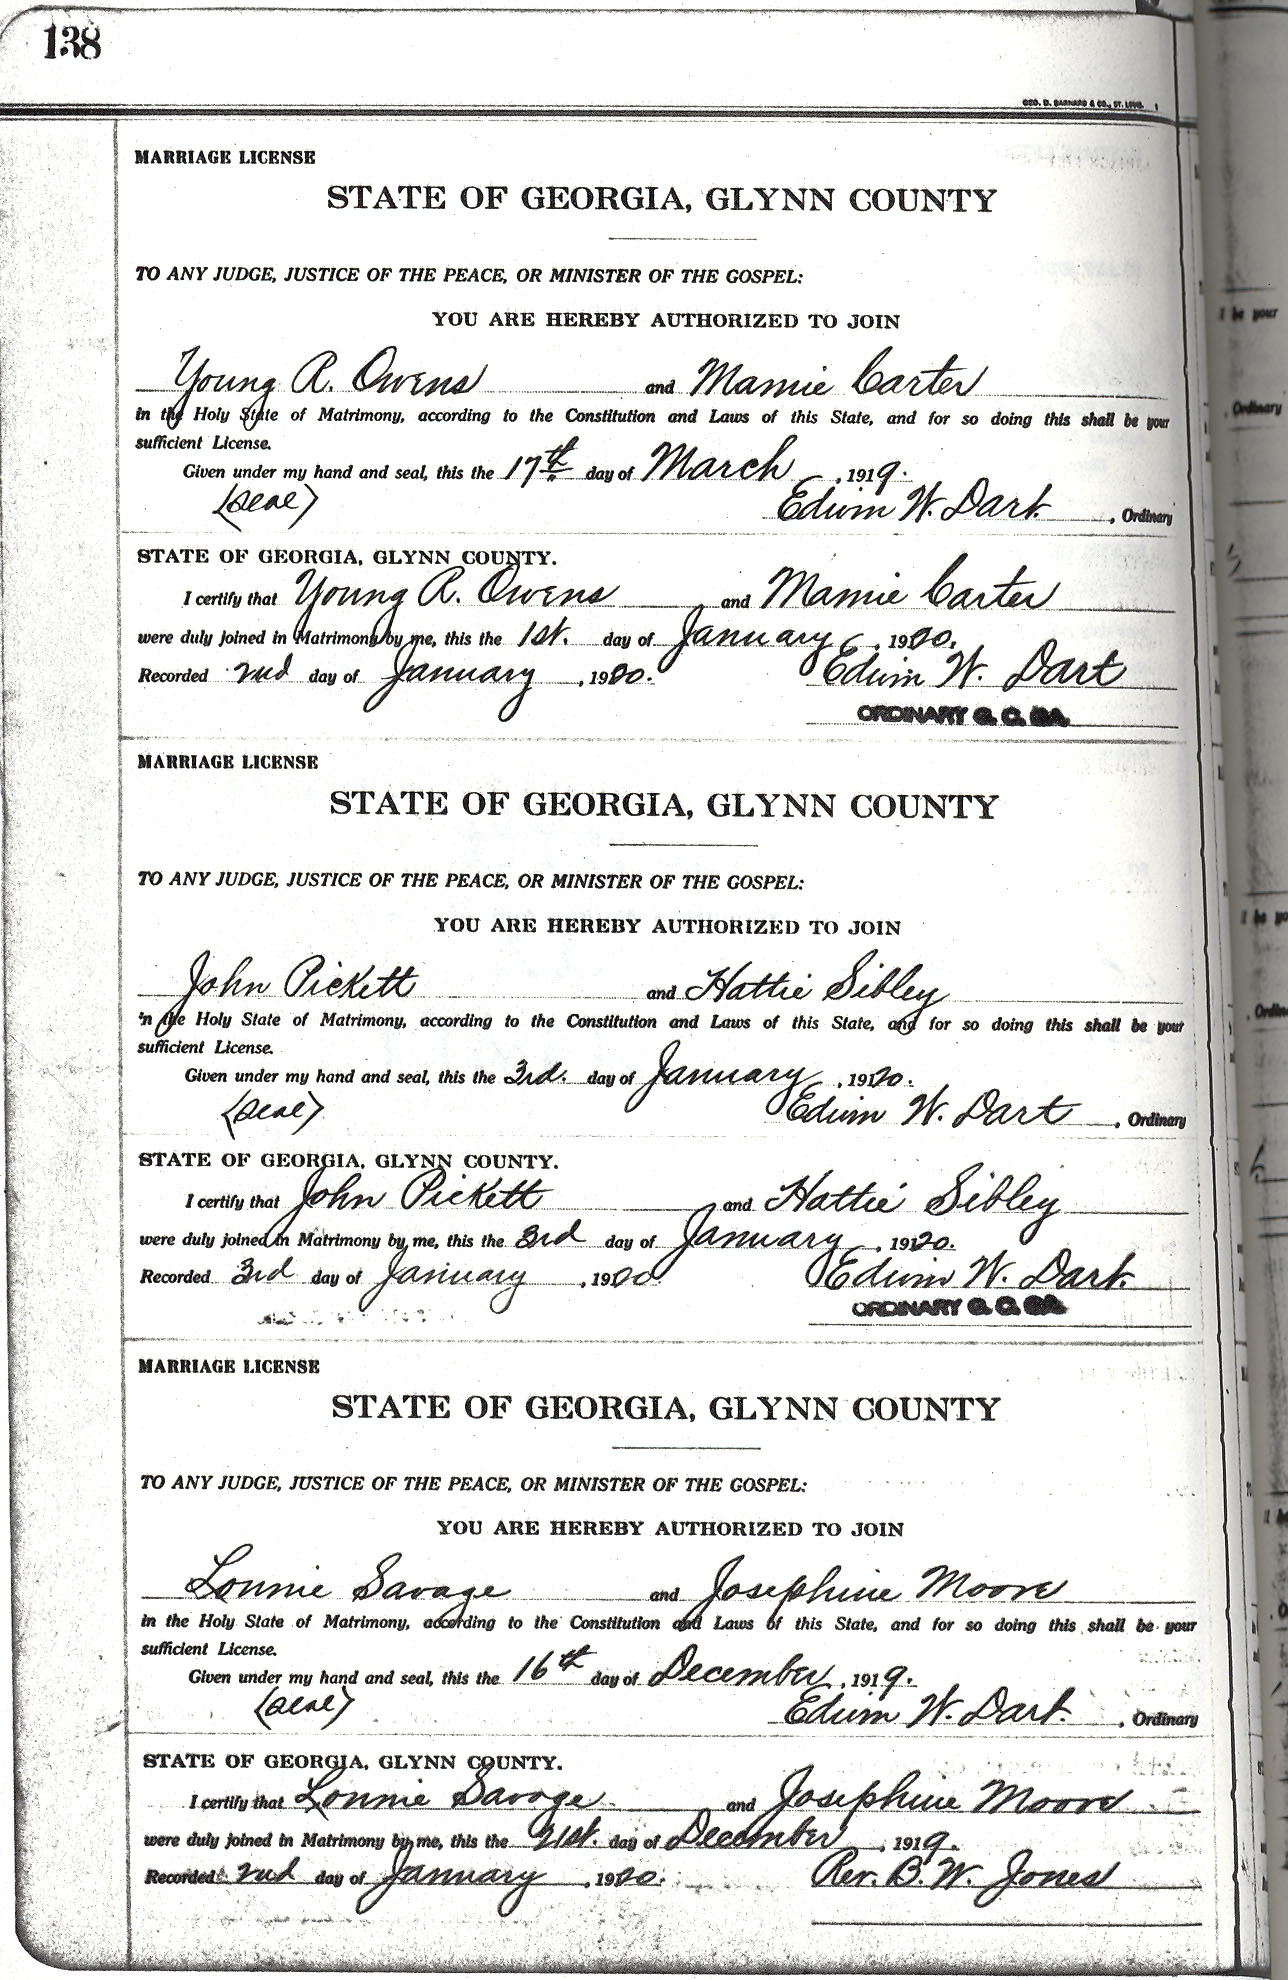 138
GEO. D. BARNARD & CO., ST. LOUIS.
MARRIAGE LICENSE
STATE OF GEORGIA, GLYNN COUNTY
TO ANY JUDGE, JUSTICE OF THE PEACE, OR MINISTER OF THE GOSPEL:
YOU ARE HEREBY AUTHORIZED TO JOIN
Young R. Owens and Mamie Carter
in the Holy State of Matrimony, according to the Constitution and Laws of this State, and for so doing this shall be your
sufficient License.
Given under my hand and seal, this the 17th day of March, 1919.
(seal) Edwin W. Dart, Ordinary
STATE OF GEORGIA, GLYNN COUNTY.
I certify that Young R. Owens and Mamie Carter
were duly joined in Matrimony by me, this the 1st. day of January, 1920.
Recorded 2nd day of January, 1920. Edwin W. Dart
ORDINARY G. C. GA.
MARRIAGE LICENSE
STATE OF GEORGIA, GLYNN COUNTY
TO ANY JUDGE, JUSTICE OF THE PEACE, OR MINISTER OF THE GOSPEL:
YOU ARE HEREBY AUTHORIZED TO JOIN
John Pickett and Hattie Sibley
in the Holy State of Matrimony, according to the Constitution and Laws of this State, and for so doing this shall be your
sufficient License.
Given under my hand and seal, this the 3rd. day of January, 1920.
(seal) Edwin W. Dart, Ordinary
STATE OF GEORGIA, GLYNN COUNTY.
I certify that John Pickett and Hattie Sibley
were duly joined in Matrimony by me, this the 3rd day of January, 1920.
Recorded 3rd day of January, 1920 Edwin W. Dart.
ORDINARY G. C. GA.
MARRIAGE LICENSE
STATE OF GEORGIA, GLYNN COUNTY
TO ANY JUDGE, JUSTICE OF THE PEACE, OR MINISTER OF THE GOSPEL:
YOU ARE HEREBY AUTHORIZED TO JOIN
Lonnie Savage and Josephine Moore
in the Holy State of Matrimony, according to the Constitution and Laws of this State, and for so doing this shall be your
sufficient License.
Given under my hand and seal, this the 16th day of December, 1919.
(seal) Edwin W. Dart., Ordinary
STATE OF GEORGIA, GLYNN COUNTY.
I certify that Lonnie Savage and Josephine Moore
were duly joined in Matrimony by me, this the 21st. day of December, 1919.
Recorded 2nd day of January, 1920. Rev. B. W. Jones